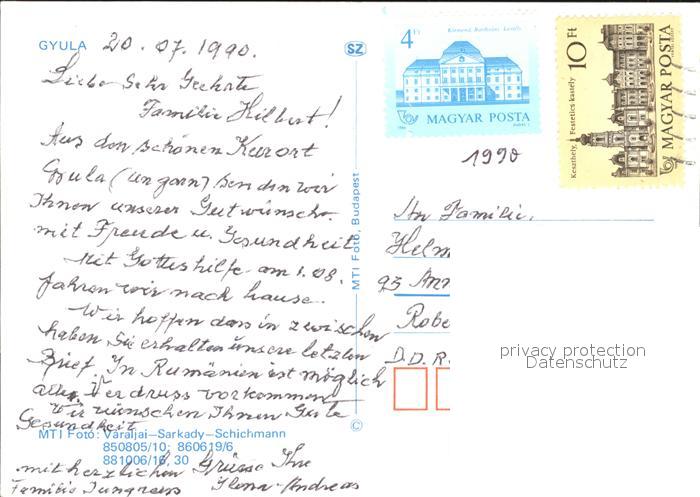 GYULA 20. 07. 1990.
Liebe Sehr Geehrte
Familie Hilbert!
Aus den schönen Kurort
Gyula (ungarn) senden wir
Ihnen unserer Gutwünsche
mit Freude u. Gesundheit
Mit Gotteshilfe am 1.08.
fahren wir nach hause.
Wir hoffen das in zwischen
haben Sie erhalten unsere letzten
Brief. In Rumänien ist möglich
alles. Verdruss vorkommen
Wir wünschen Ihnen Gute
Gesundheit
mit herzlichen Grüsse Ihre
Familie Ilona-Andreas
MTI Fotó: Váraljai—Sarkady—Schichmann
850805/10; 860619/6
881006/16, 30
SZ
MTI Fotó, Budapest
©
4 Ft
MAGYAR POSTA
10 Ft
Keszthely, Festetics kastély
MAGYAR POSTA
1990
An Familie,
Helm
93 Ann
Robe
D.D.R.
privacy protection
Datenschutz